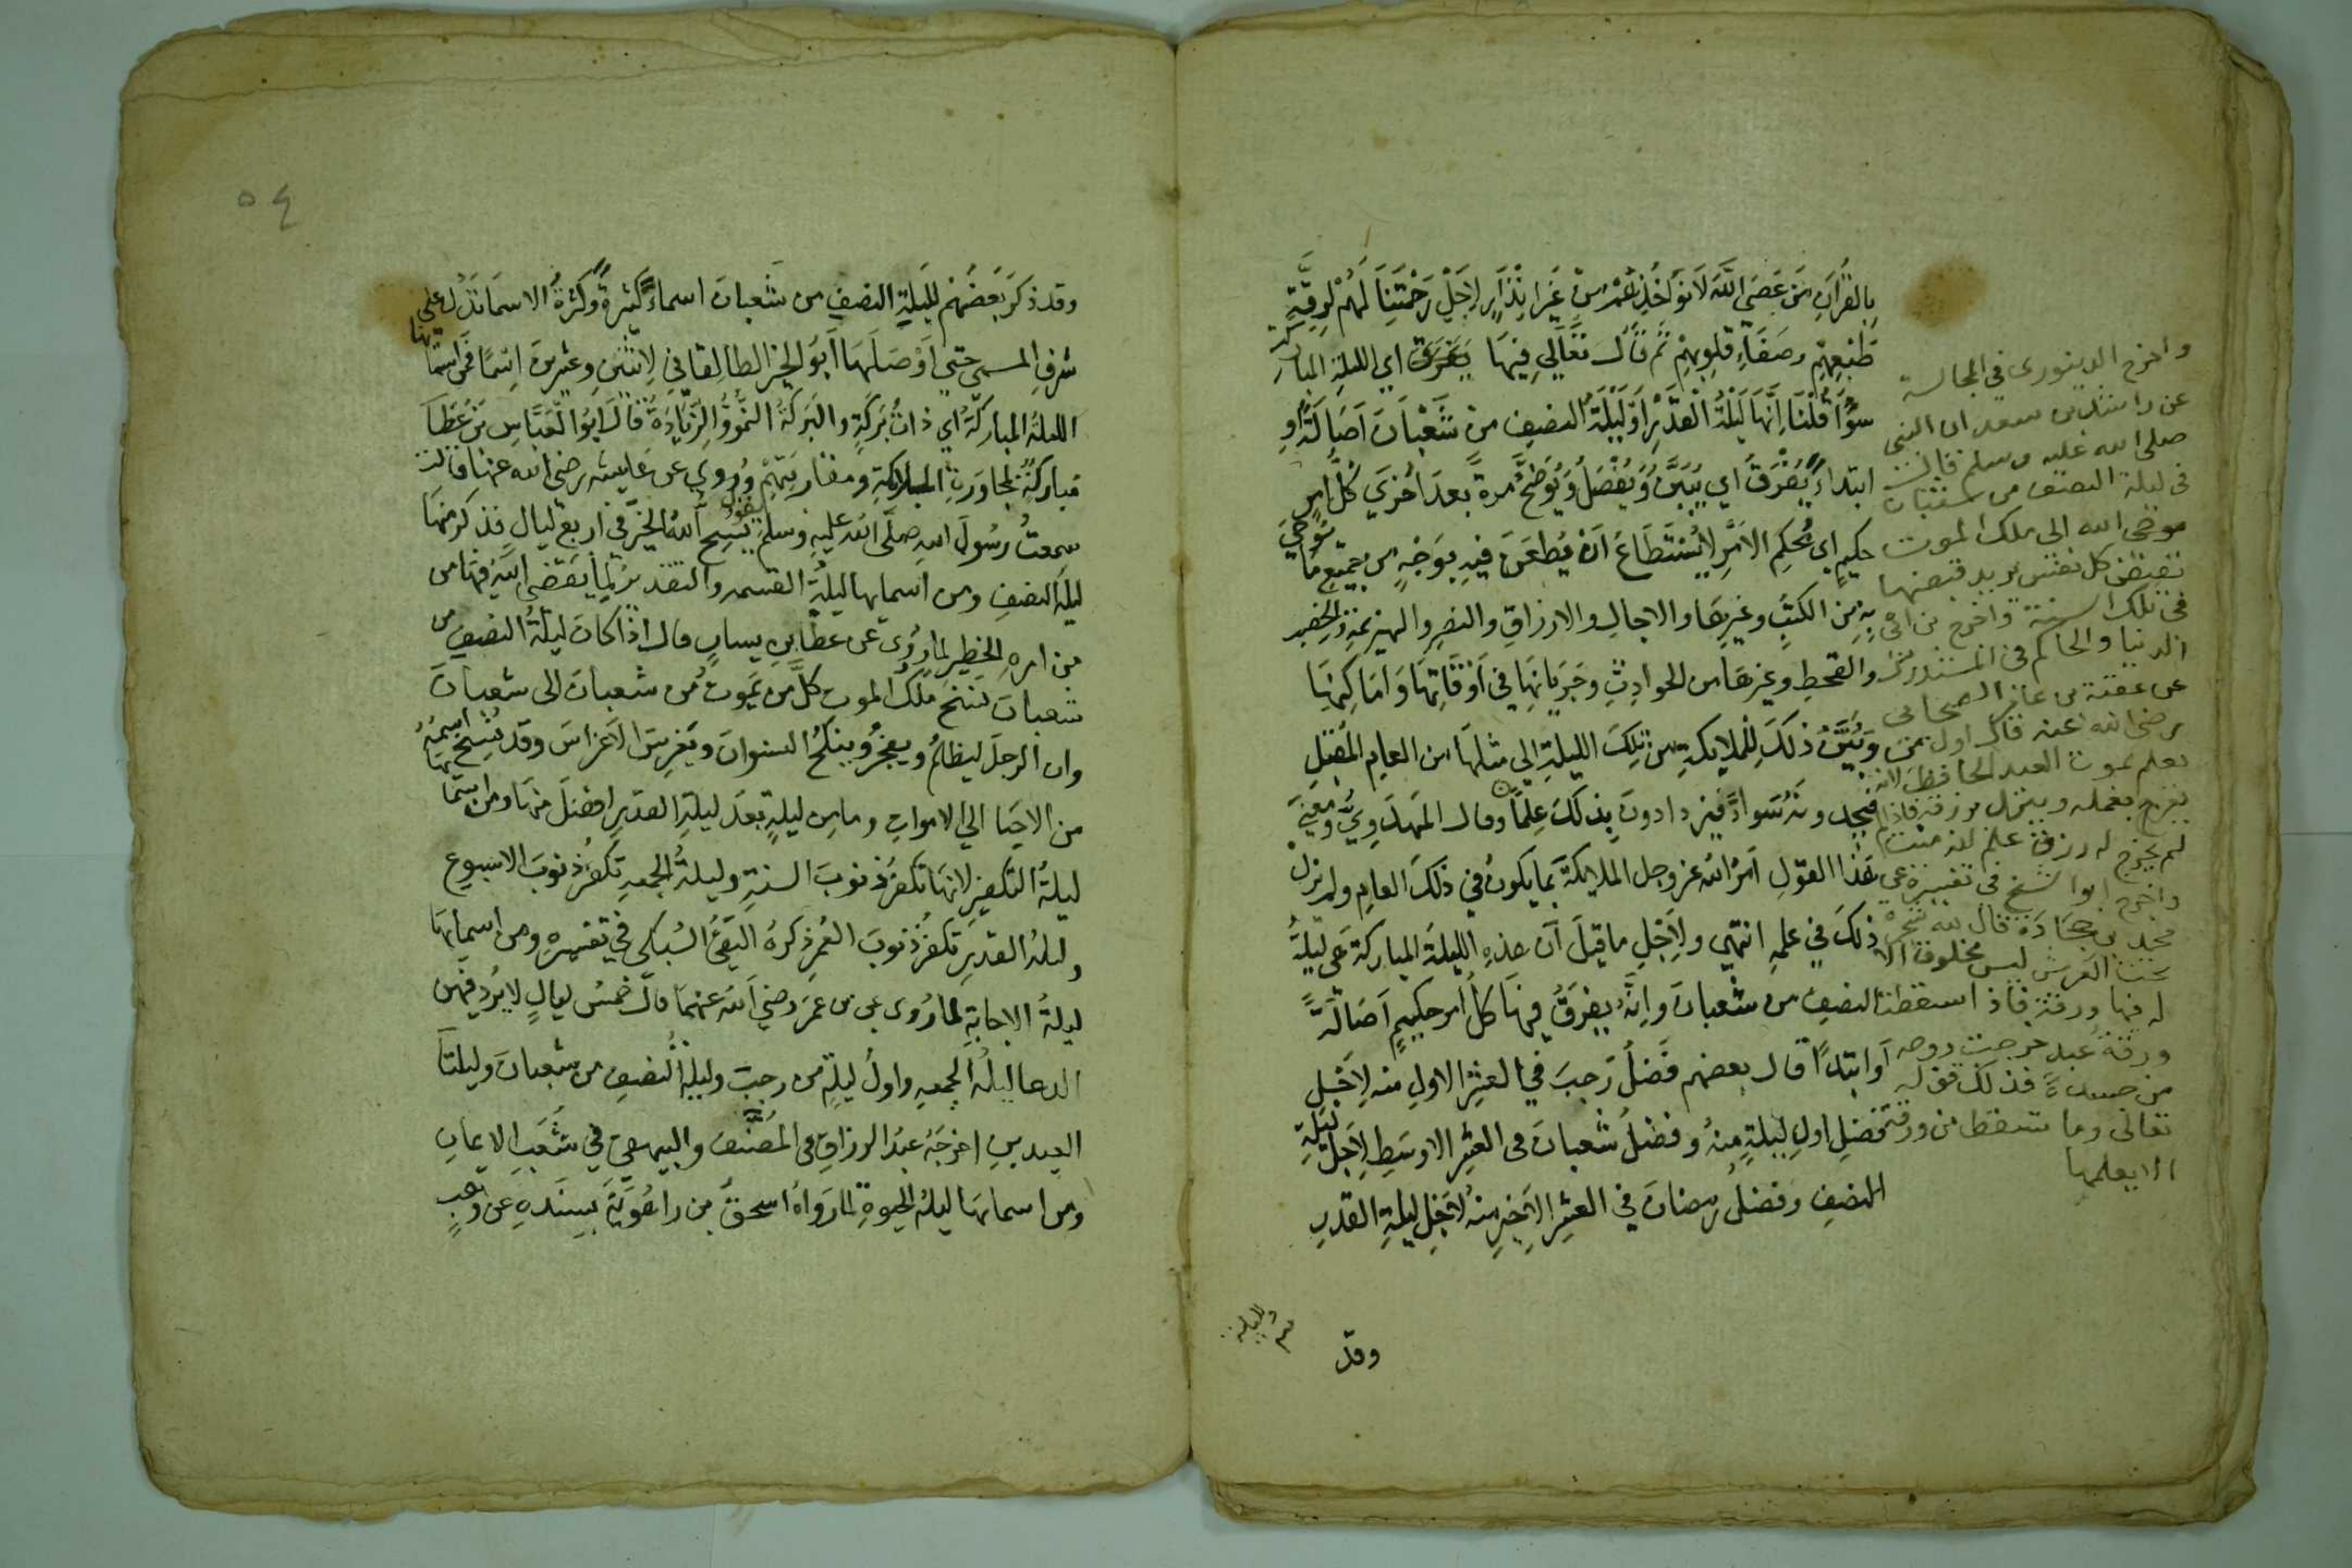 بالقرآن من عصى الله لا نؤاخذ من غير انذار لاجل رحمتنا لهم لرقة
طبعهم وصفاء قلوبهم ثم قال تعالى فيها يفرق اي الليلة المباركة
سواء قلنا انها ليلة القدر او ليلة النصف من شعبان اصالة او
ابتداء يفرق اي يبين ويفصل ويوضح مرة بعد اخرى كل امر
حكيم اي محكم الامر لا يستطاع ان يطعن فيه بوجه من جميع ما يوحي
به من الكتب وغيرها والاجال والارزاق والنصر والهزيمة والخصب
والقحط وغيرها من الحوادث وجريانها في اوقاتها واماكنها
ويبين ذلك للملايكة من تلك الليلة الى مثلها من العام المقبل
فيجدونه سواء فيزدادون بذلك علما وقال المهدوي ومعنى
هذا القول امر الله عز وجل الملايكة بما يكون في ذلك العام ولم يزل
ذلك في علمه انتهى ولاجل ما قيل ان هذه الليلة المباركة هي ليلة
النصف من شعبان وانه يفرق فيها كل امر حكيم اصالة
او ابتداء قال بعضهم فضل رجب في العشر الاول منه لاجل
فضل اول ليلة منه وفضل شعبان في العشر الاوسط لاجل ليلة
النصف وفضل رمضان في العشر الاخير منه لاجل ليلة القدر
وقد
واخرج الدينوري في المجالسة
عن راشد بن سعد ان النبي
صلى الله عليه وسلم قال
في ليلة النصف من شعبان
يوحى الله الى ملك الموت
بقبض كل نفس يريد قبضها
في تلك السنة واخرج ابن ابي
الدنيا والحاكم في المستدرك
عن عقبة بن عامر الصحابي
رضي الله عنه قال اول من
يعلم بموت العبد الحافظ لانه
يعرج بعمله وينزل برزقه فاذا
لم يخرج له رزق علم انه ميت
واخرج ابو الشيخ في تفسيره عن
محمد بن جحادة قال لله شجرة
تحت العرش ليس مخلوق الا
له فيها ورقة فاذا سقطت
ورقة عبد خرجت روحه
من جسده فذلك قوله
تعالى وما تسقط من ورقة
الا يعلمها
٥٤
وقد ذكر بعضهم لليلة النصف من شعبان اسماء كثيرة وكثرة الاسما تدل على
شرف المسمى حتى اوصلها ابو الخير الطالقاني لاثنين وعشرين اسما فمن اسمائها
الليلة المباركة اي ذات بركة والبركة النمو والزيادة قال ابو العباس بن عطا
مباركة لمجاورة الملايكة ومقاربتهم وروي عن عايشه رضي الله عنها قالت
سمعت رسول الله صلى الله عليه وسلم يقول يسح الله الخير في اربع ليال فذكر منها
ليلة النصف ومن اسمايها ليلة القسمه والتقدير لما يقضي الله فيها من
من امره الخطير لما روى عن عطا بن يسار قال اذا كانت ليلة النصف من
شعبان نسخ ملك الموت كل من يموت من شعبان الى شعبان
وان الرجل ليظلم ويفجر وينكح النسوان ويغرس الاغراس وقد نسخ اسمه
من الاحيا الى الاموات وما من ليلة بعد ليلة القدر افضل منها ومن اسمائها
ليلة التكفير لانها تكفر ذنوب السنة وليلة الجمعه تكفر ذنوب الاسبوع
وليلة القدر تكفر ذنوب العمر ذكره التقي السبكى في تفسيره ومن اسمايها
ليلة الاجابة لما روى عن بن عمر رضي الله عنهما قال خمس ليال لا يرد فيهن
الدعا ليلة الجمعه واول ليلة من رجب وليلة النصف من شعبان وليلتا
العيدين اخرجه عبد الرزاق في المصنف والبيهقي في شعب الايمان
ومن اسمائها ليلة الحيوة لما رواه اسحق بن راهويه بسنده عن وهب